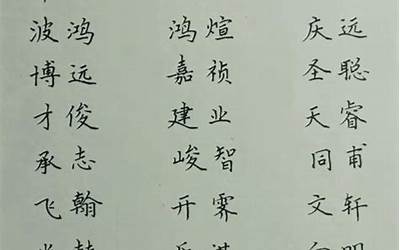 波鸿 鸿煊 庆远
博远 嘉祯 圣聪
才俊 建业 天睿
承志 峻智 同甫
飞翰 开霁 文轩